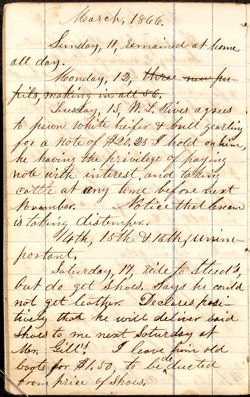 March, 1866.
Sunday, 11, remained at home
all day.
Monday, 12, three new pu-
pils, making in all 36.
Tuesday, 13, W. L. Hives agrees
to pawn white heifer & bull yearling
for a note of $21.25 I hold on him,
he having the privilege of paying
note with interest, and taking
cattle at any time before next
November. Notice that
is taking distemper.
14th, 15th & 16th, unim-
portant.
Saturday, 17, ride to Street's,
but do get shoes. Says he could
not get leather. Declares posi-
tively that he will deliver said
shoes to me next Saturday at
Mr. Gill's. I leave him old
boots for $1.50 to be deducted
from price of shoes.